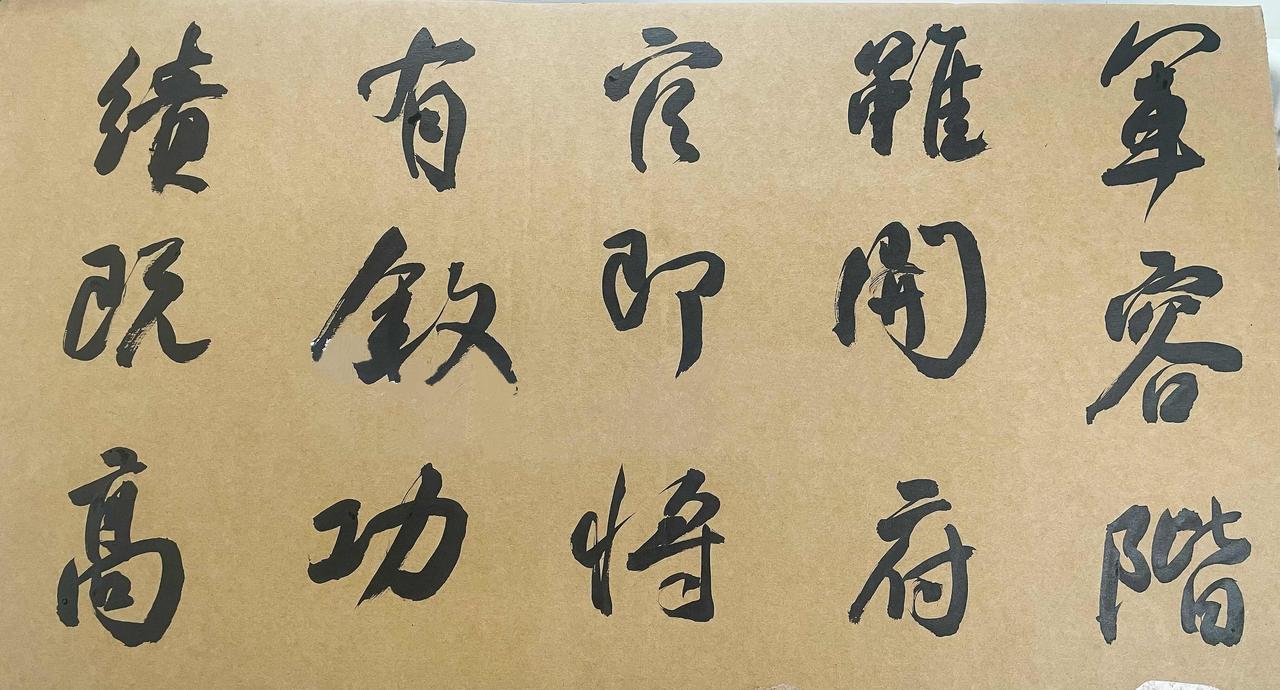 軍容階
雖開府
官即將
有敘功
績既高